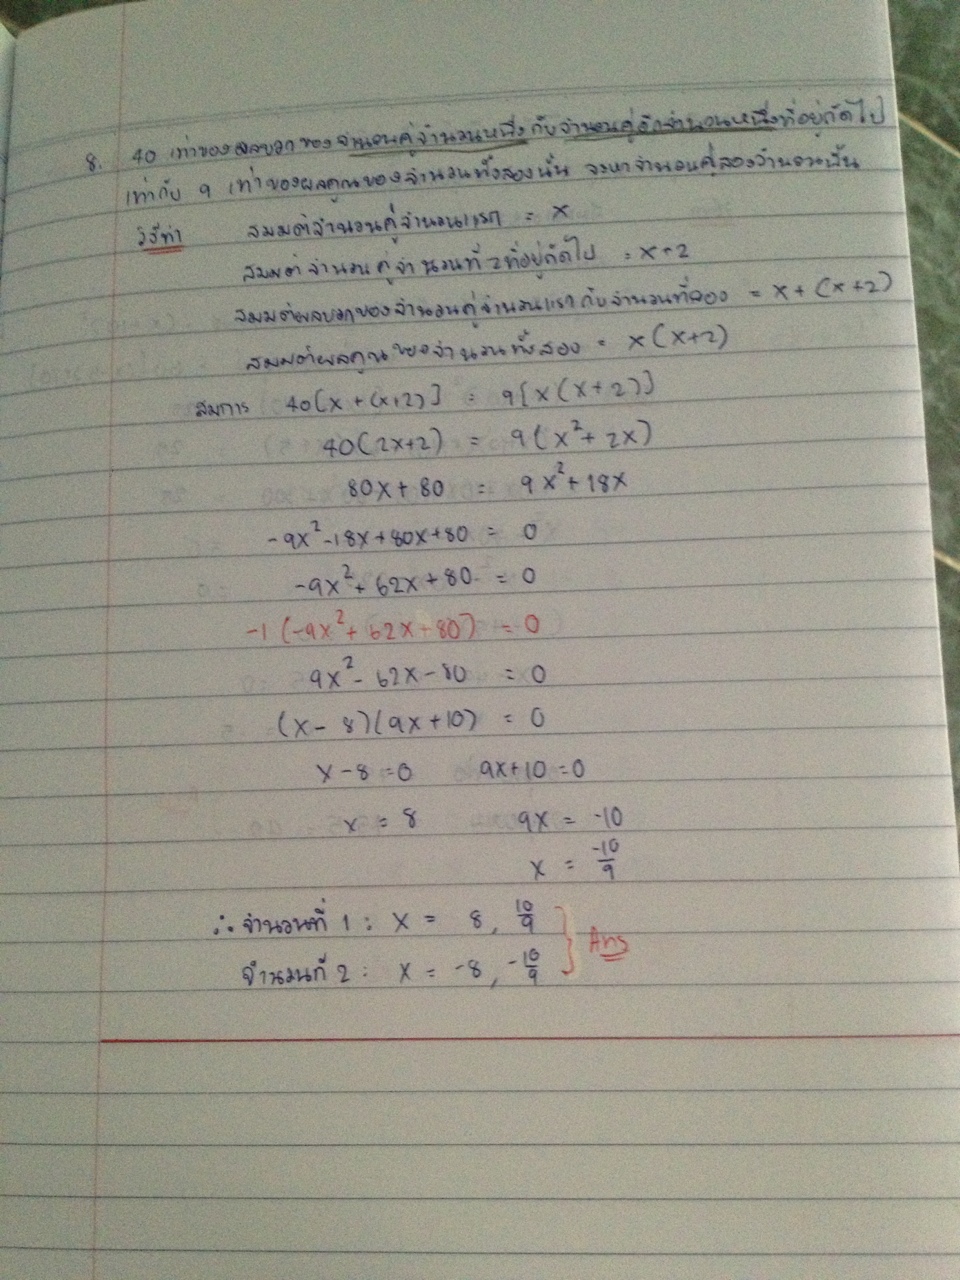 8. 40 เท่าของผลบวกของจำนวนคู่จำนวนหนึ่งกับจำนวนคู่อีกจำนวนหนึ่งที่อยู่ถัดไป
เท่ากับ 9 เท่าของผลคูณของจำนวนทั้งสองนั้น จงหาจำนวนคู่สองจำนวนนั้น
วิธีทำ สมมติจำนวนคู่จำนวนแรก = x
สมมติจำนวนคู่จำนวนที่ 2 ที่อยู่ถัดไป = x+2
สมมติผลบวกของจำนวนคู่จำนวนแรกกับจำนวนที่สอง = x+(x+2)
สมมติผลคูณของจำนวนทั้งสอง = x(x+2)
สมการ 40[x+(x+2)] = 9[x(x+2)]
40(2x+2) = 9(x²+2x)
80x+80 = 9x²+18x
-9x²-18x+80x+80 = 0
-9x²+62x+80 = 0
-1(-9x²+62x+80) = 0
9x²-62x-80 = 0
(x-8)(9x+10) = 0
x-8=0 9x+10=0
x = 8 9x = -10
x = -10/9
∴ จำนวนที่ 1 : x = 8, 10/9
จำนวนที่ 2 : x = -8, -10/9 Ans